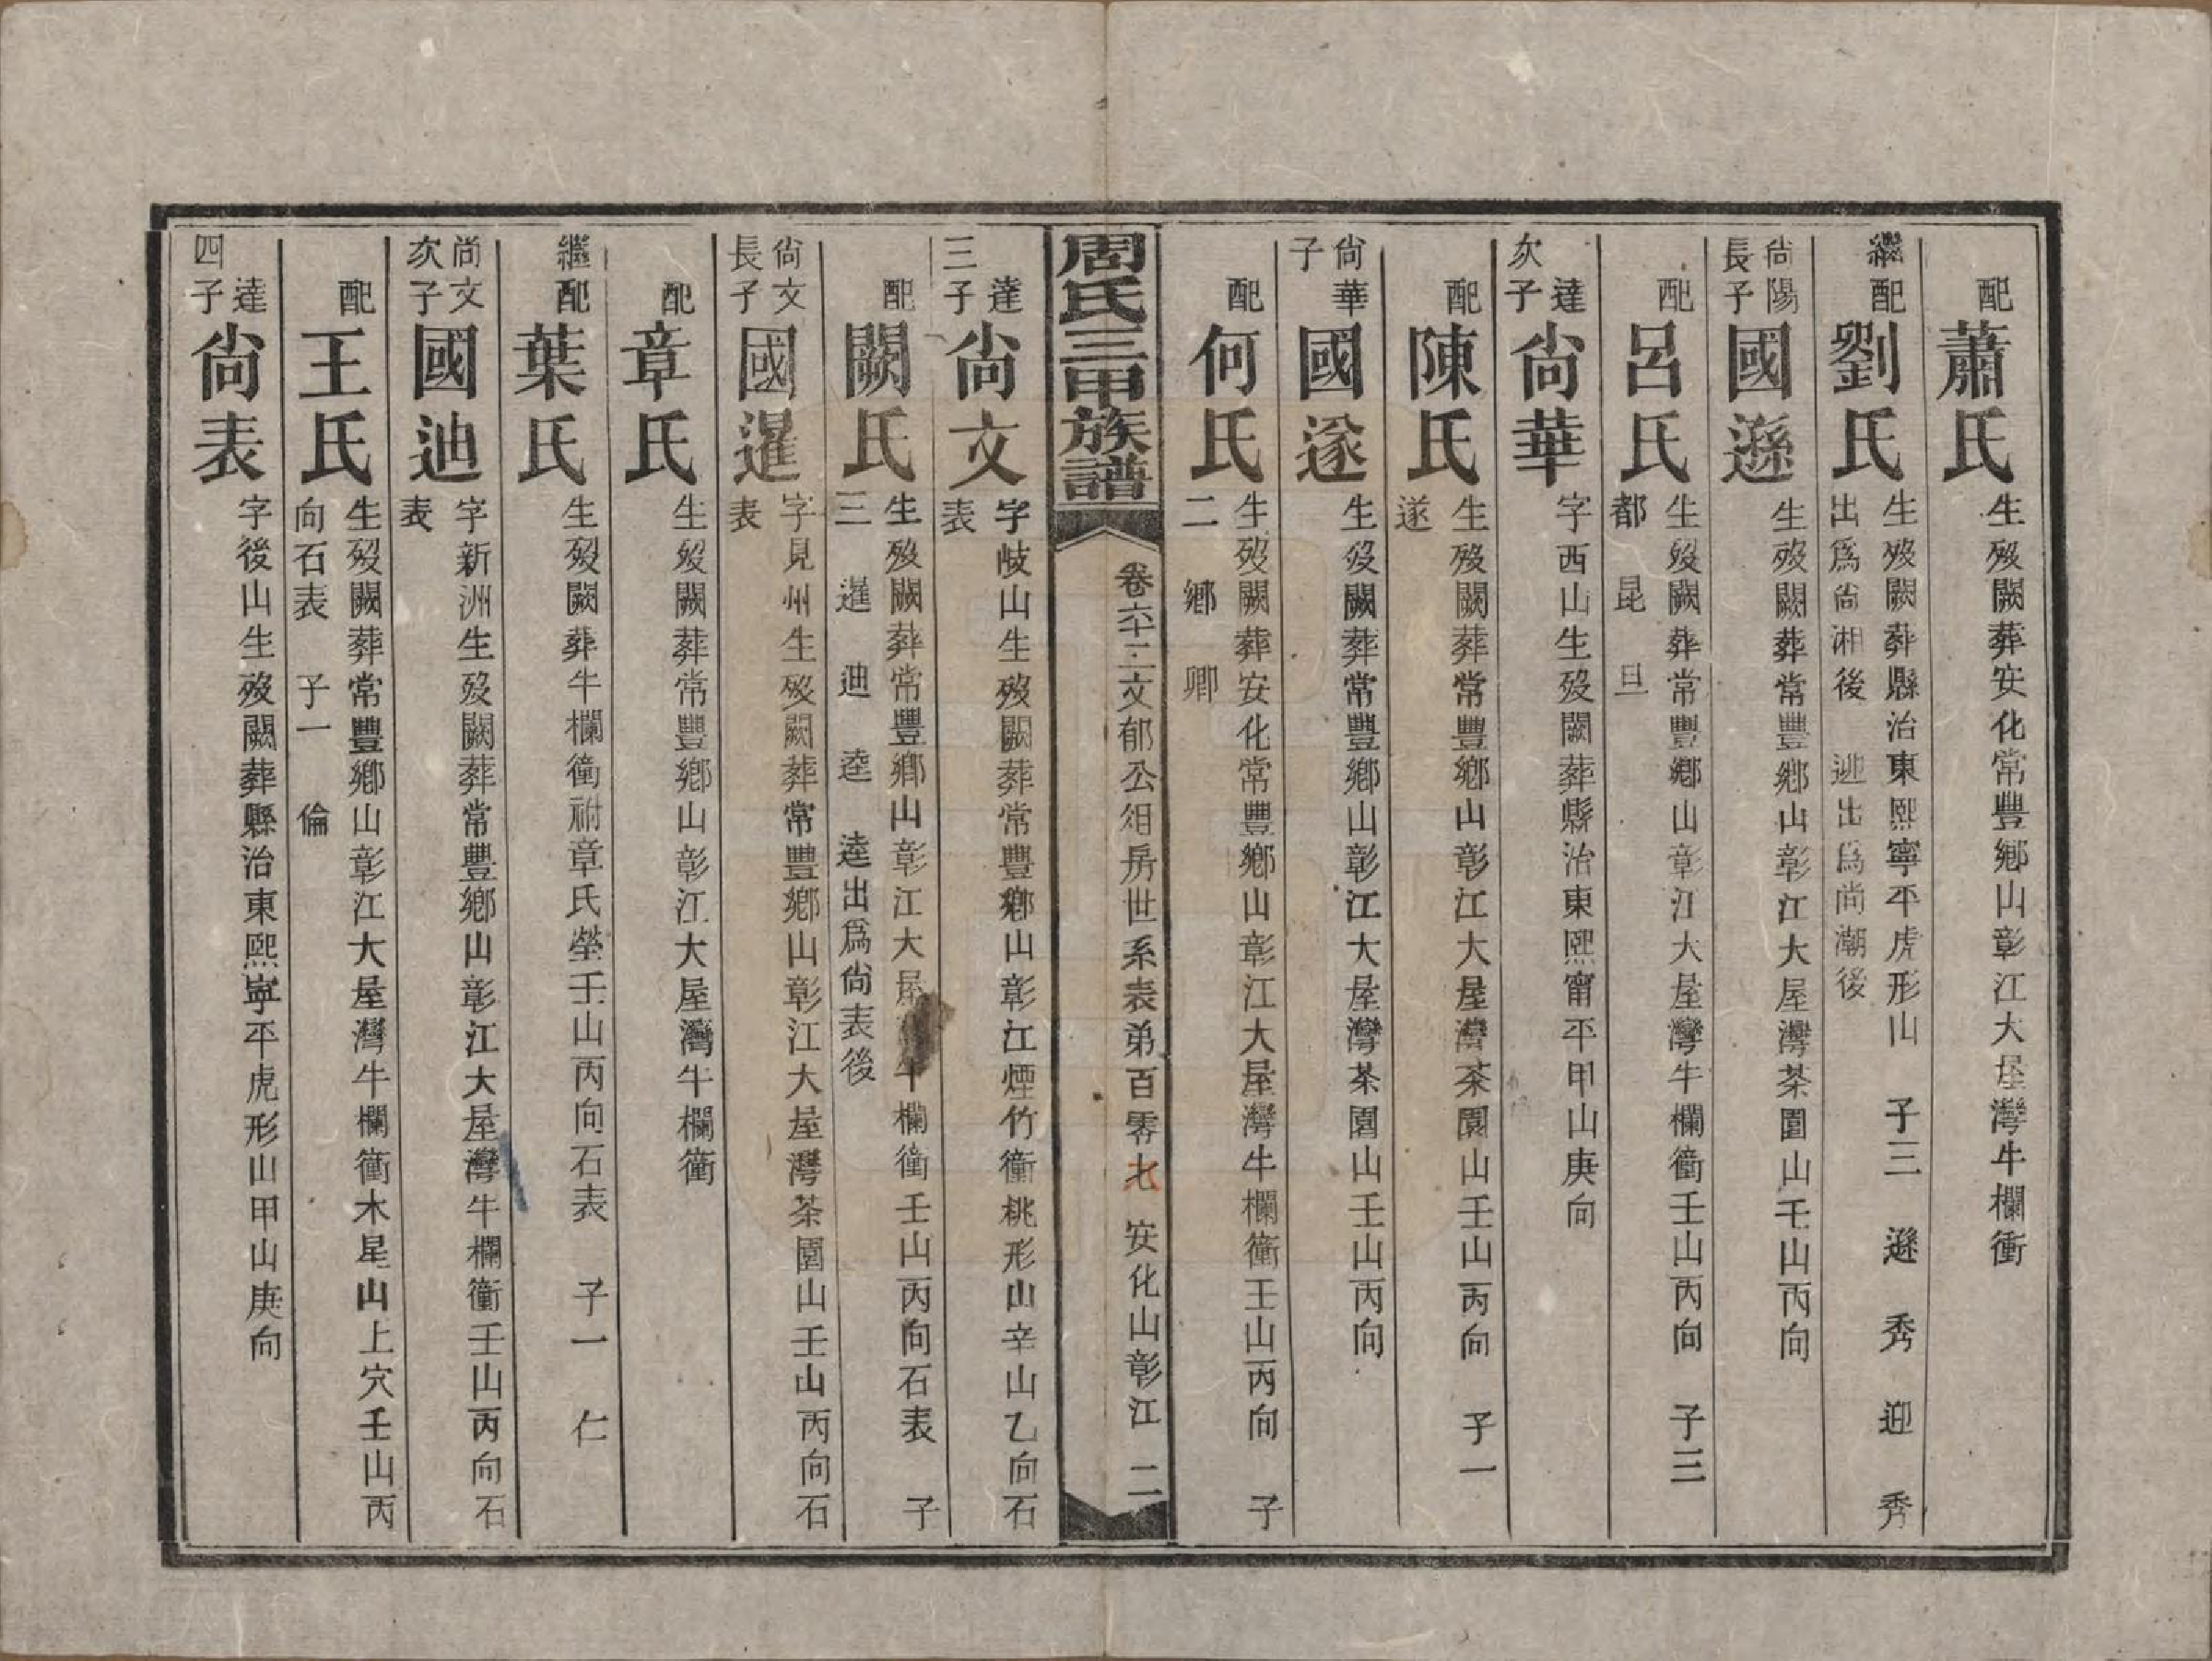 配蕭氏生歿闕葬安化常豐鄉山彰江大屋灣牛欄衝
繼配劉氏生歿闕葬縣治東熙寧平虎形山 子三 遜 秀 迎 秀
出爲尙湘後 迎出爲尙潮後
尙陽長子國遜生歿闕葬常豐鄉山彰江大屋灣茶園山壬山丙向
配呂氏生歿闕葬常豐鄉山彰江大屋灣牛欄衝壬山丙向 子三
都 昆 旦
達次子尙華字西山生歿闕葬縣治東熙甯平甲山庚向
配陳氏生歿闕葬常豐鄉山彰江大屋灣茶園山壬山丙向 子一
遂
尙華子國遂生歿闕葬常豐鄉山彰江大屋灣茶園山壬山丙向
配何氏生歿闕葬安化常豐鄉山彰江大屋灣牛欄衝壬山丙向 子
二 鄉 卿
周氏三甲族譜 卷六十二文郁公徂房世系表弟百零九 安化山彰江 二
達三子尙文字岐山生歿闕葬常豐鄉山彰江煙竹衝桃形山辛山乙向石
表
配闕氏生歿闕葬常豐鄉山彰江大屋牛欄衝壬山丙向石表 子
三 暹 迪 逵 逵出爲尙表後
尙文長子國暹字見州生歿闕葬常豐鄉山彰江大屋灣茶園山壬山丙向石
表
配章氏生歿闕葬常豐鄉山彰江大屋灣牛欄衝
繼配葉氏生歿闕葬牛欄衝祔章氏塋壬山丙向石表 子一 仁
尙文次子國迪字新洲生歿闕葬常豐鄉山彰江大屋灣牛欄衝壬山丙向石
表
配王氏生歿闕葬常豐鄉山彰江大屋灣牛欄衝木星山上穴壬山丙
向石表 子一 倫
達四子尙表字後山生歿闕葬縣治東熙寧平虎形山甲山庚向